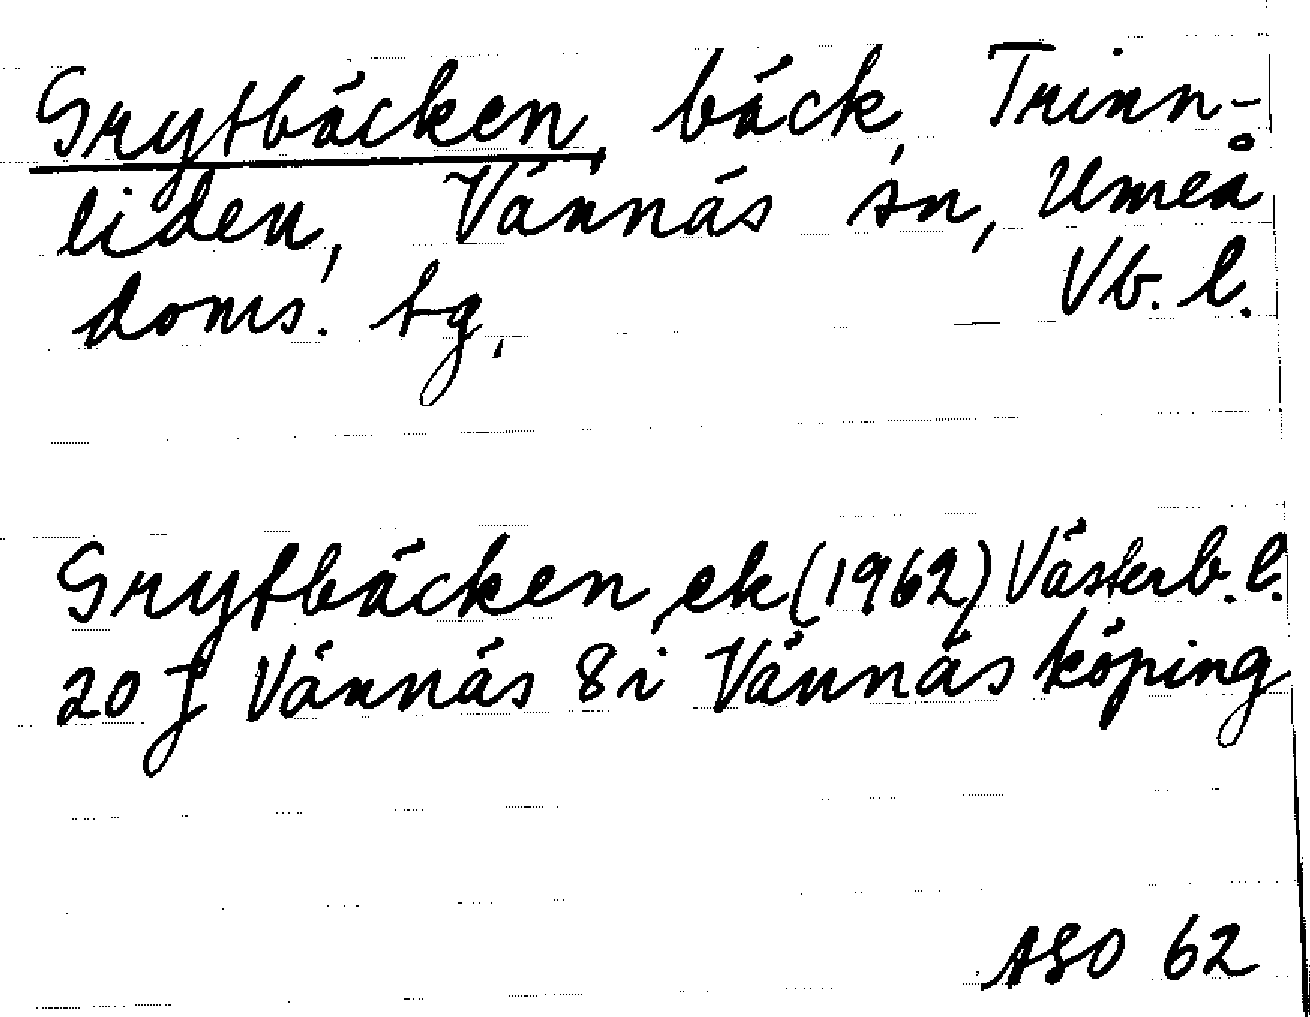 Grytbäcken, bäck, Trinn-
liden, Vännäs sn, Umeå
doms. tg, Vb. l.
Grytbäcken, ek (1962) Västerb. l.
20 J Vännäs 8i Vännäs köping
ASO 62